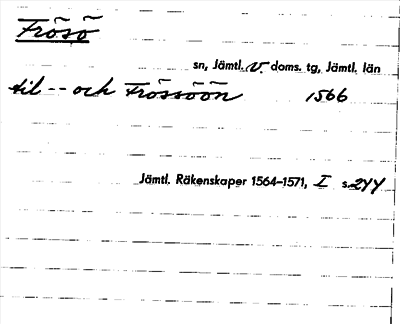 Frösö
sn, Jämtl. v. doms. tg, Jämtl. län
til -- och Frössöön 1566
Jämtl. Räkenskaper 1564–1571, I s. 244